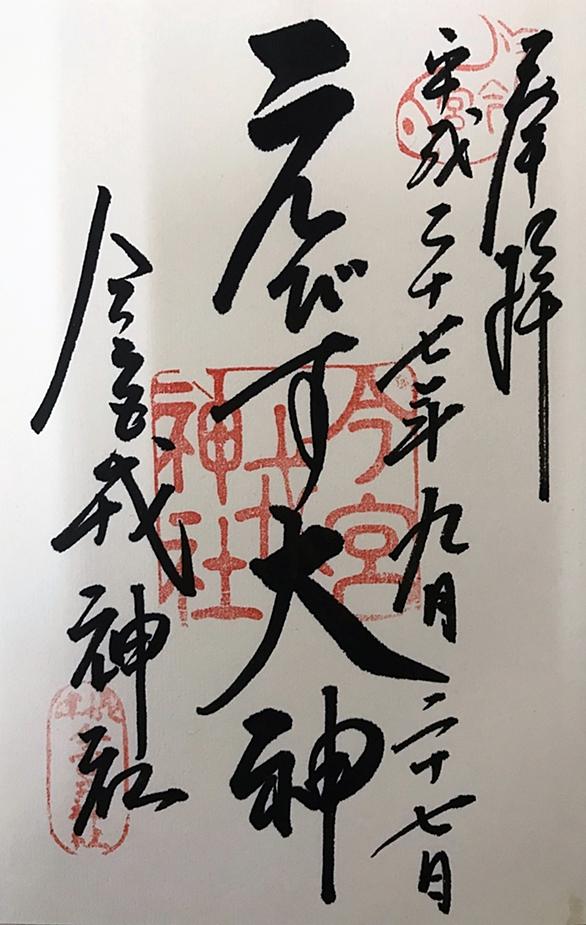 奉拝
平成二十七年九月二十七日
えびす大神
今宮戎神社
今宮
今宮戎神社